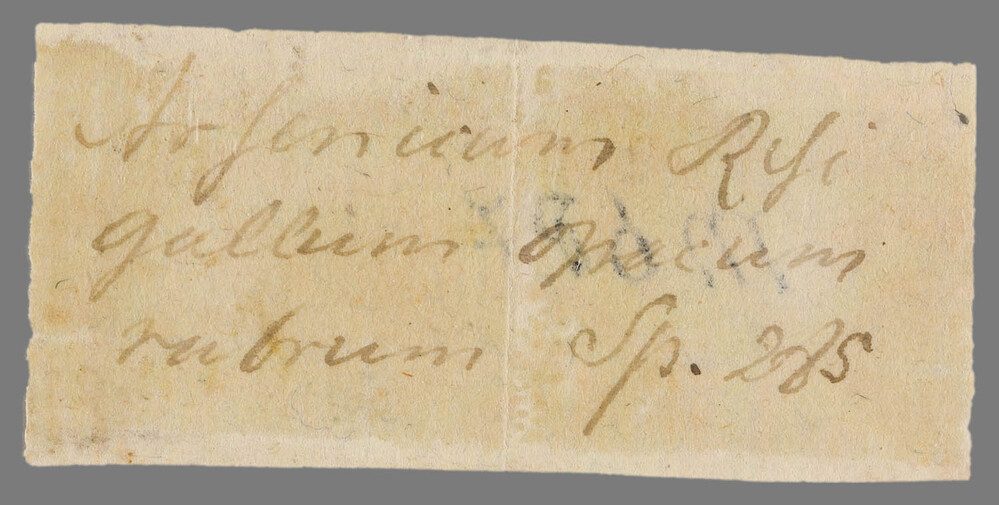 Arsenicum Resi
gallum opacum
rubrum Sp. 285